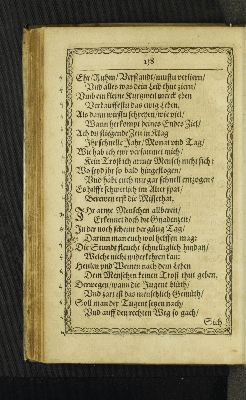 158
Ehr/Ruhm/Verstandt/mustu verliern/
Vnd alles was dem Leib thut ziern/
Vmb ein kleine Kurtzweil
Verkauffestu das ewig Leben.
Als dann wirstu schreyen/wie viel/
Wann herkompt deines Endes Ziel/
Ach du fliegende Zeit in Alag
Ihr schnelle Jahr/Monat vnd Tag/
Wie hab ich ewr versaumet mich/
Kein Trost ich armer Mensch nicht sich:
Wo seyd ihr so bald hingeflogen/
Vnd habt euch mir gar schnell entzogen?
Es hilfft schwerlich im Alter spat/
Berewen erst die Missethat.
Ihr arme Menschen allbereit/
Erkennet doch die Gnadenzeit/
In der noch scheint der gütig Tag/
Darinn man euch wol helffen mag:
Die Stundt fleucht schnelliglich hindan/
Welche nicht widerkehren kan:
Heulen vnd Weinen nach dem Leben
Dem Menschen keinen Trost thut geben.
Derwegen/wann die Jugent blüth/
Vnd zart ist das menschlich Gemüth/
Soll man der Tugent jagen nach/
Vnd auff den rechten Weg so gach/
Sich